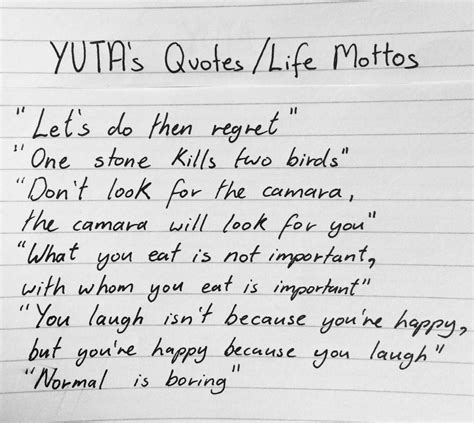 YUTA's Quotes/Life Mottos
"Let's do then regret"
"One stone kills two birds"
"Don't look for the camara,
the camara will look for you"
"What you eat is not important,
with whom you eat is important"
"You laugh isn't because you're happy,
but you're happy because you laugh"
"Normal is boring"